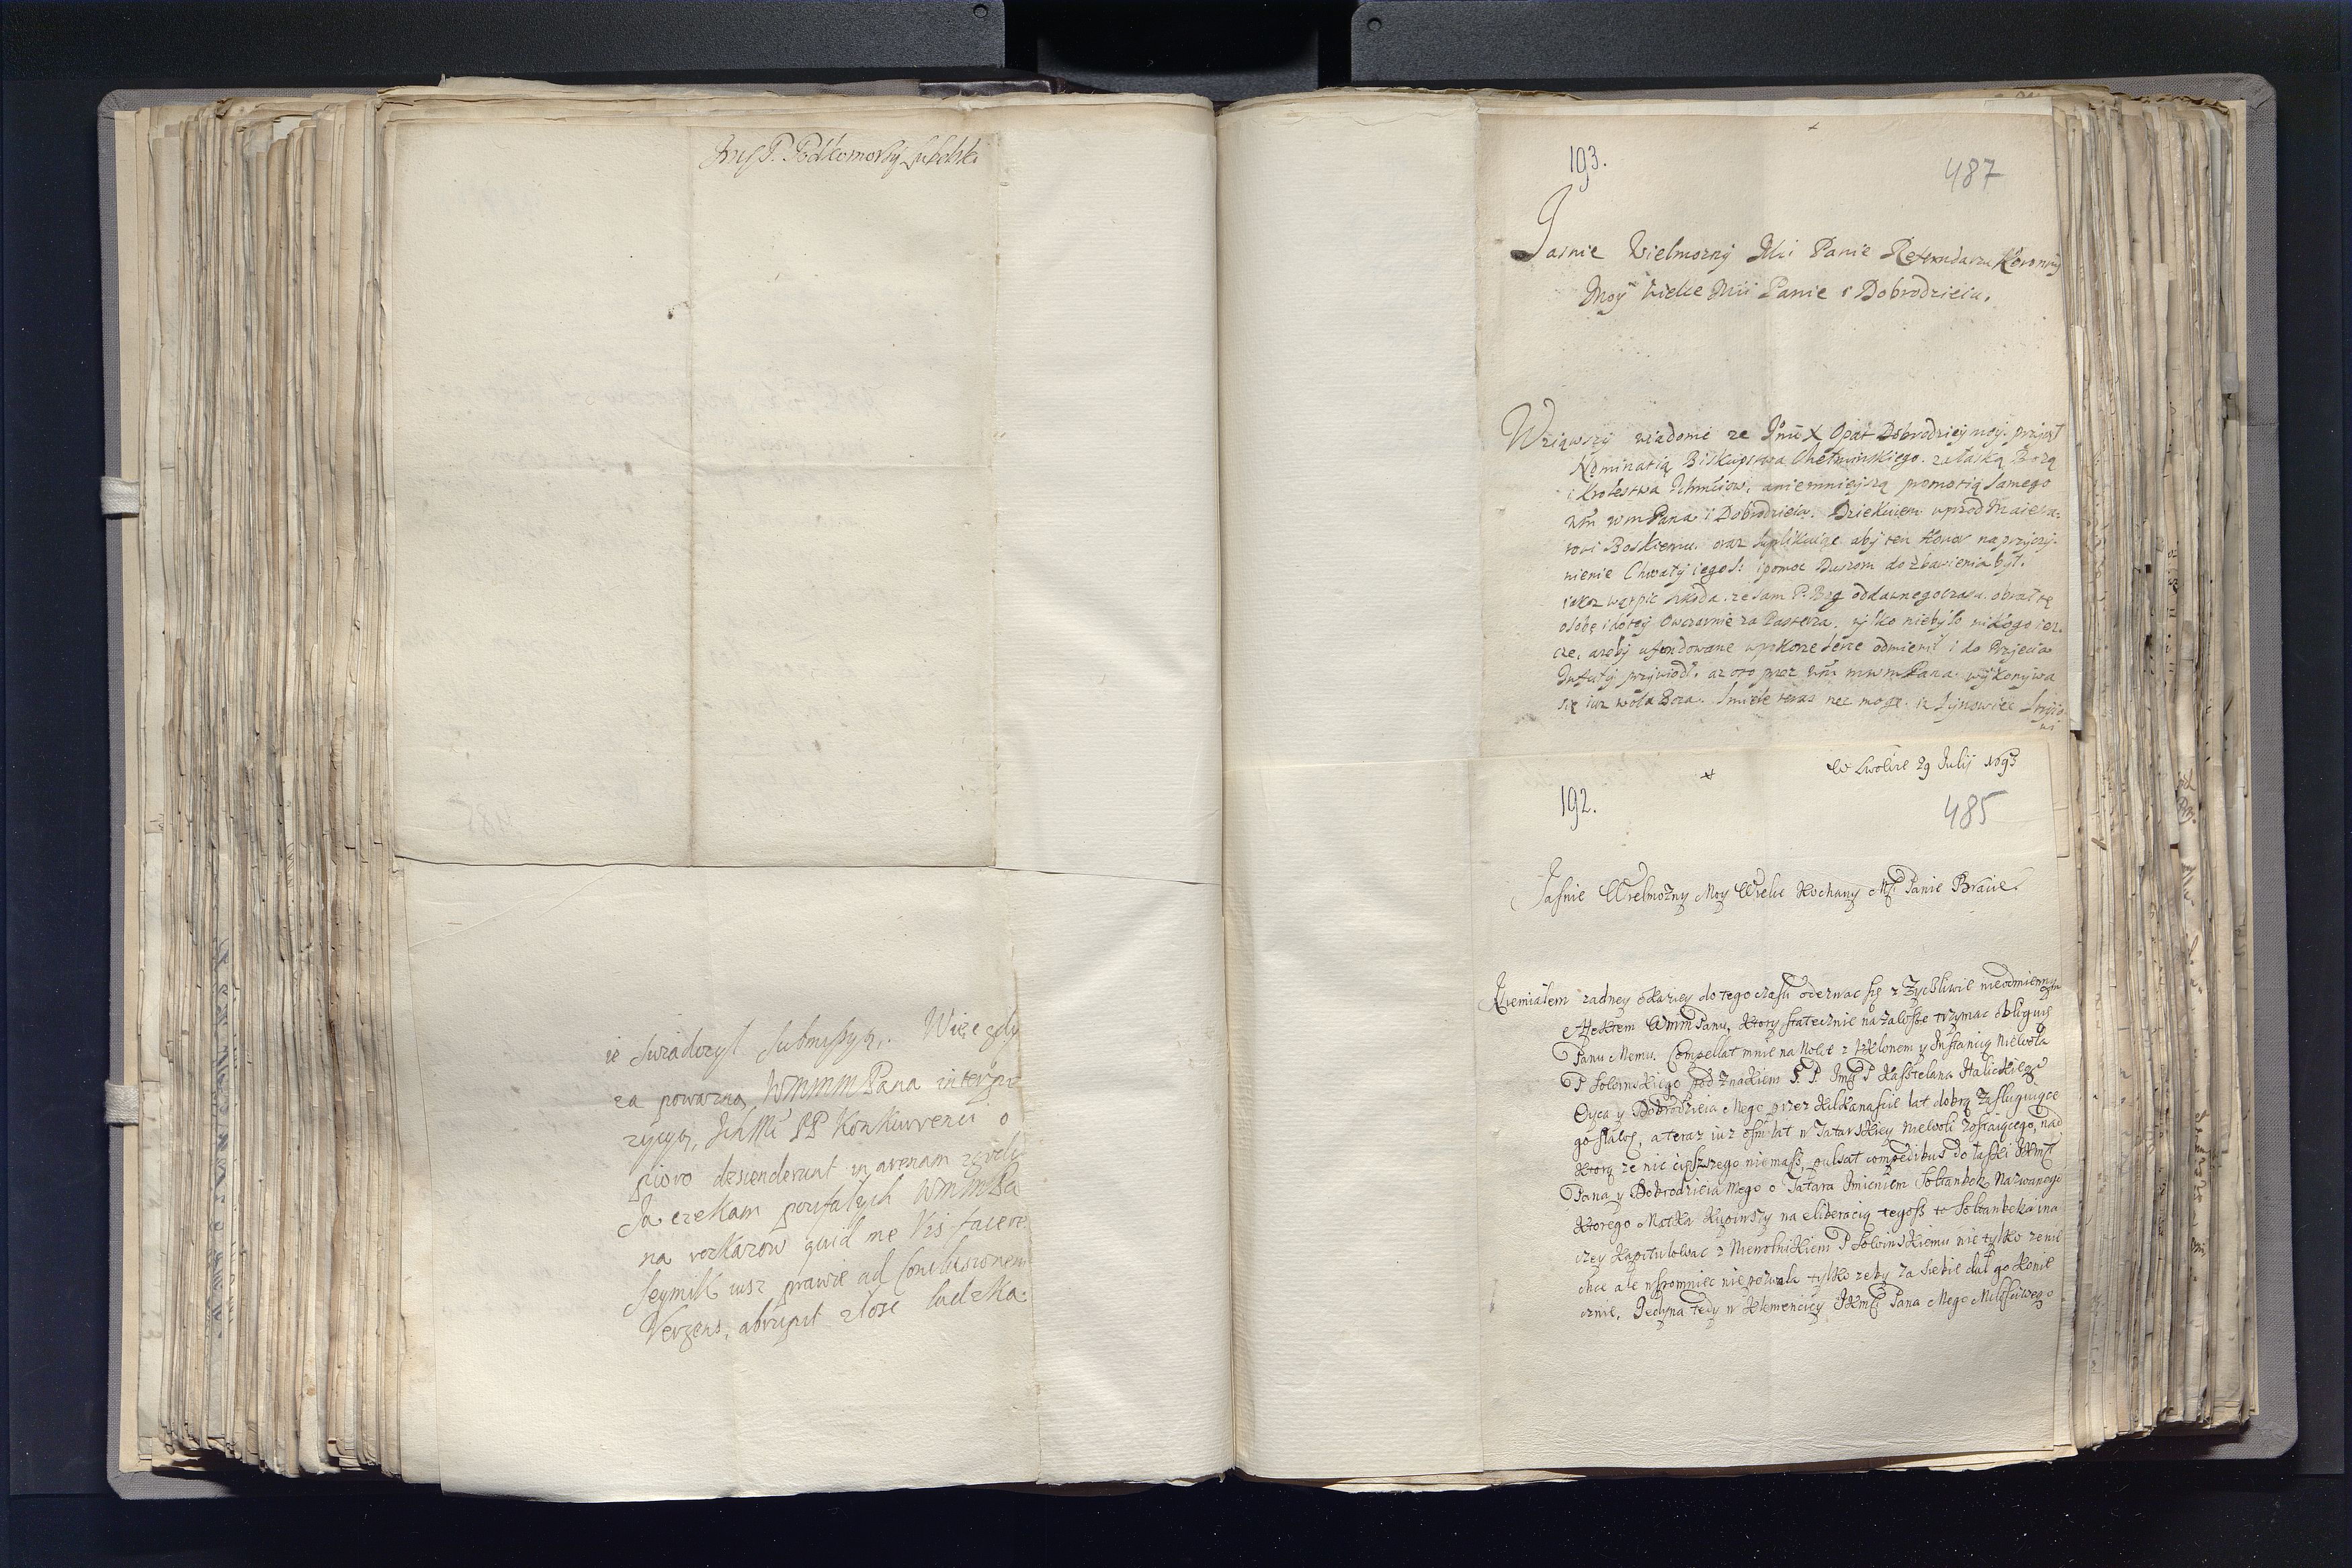 JmsP. Podkomorzy Lubelski
ie swiadczył submissyą. Więc gdy
za powazną WMMM Pana interpo
zycyą, Ichmći PP Konkurrenci o
piero descenderunt in arenam zgody
Ja czekam poufałych WMMPa
na rozkazow quid me Vis facere
Seymik iusz prawie ad Conclusionem
Vergens, abrupit złosc ludzka
193.
487
Jasnie Wielmozny Mci Panie Referendarzu Koronny
Moy wielce Mći Panie i Dobrodzieiu.
Wziąwszy wiadomć ze Jmć X Opat Dobrodziey moy. przyiął
Nominatią Biskupstwa Chełminskiego. za łaską Bozą
i Krolestwa Ichmciow, a niemnieyszą promotią samego
Wm wmPana i Dobrodzieia. Dziekuiem wprzod Maiesta-
towi Boskiemu. oraz suplikuiąc aby ten Honor na przyczy-
nienie Chwały iego S: i pomoc Duszom do zbawienia był.
iakoz wątpic szkoda. ze sam P. Bog od dawnego czasu. obrał tę
osobę i do tey Owczarnie za Pasterza. tylko niebyło nikogo iesz-
cze, azeby ufundowane w pokorze serce odmienił i do Przjęcia
Infuły przywiodł. az oto przez Wm mwmPana. wykonywa
się iuz wola Boza. Smiele teraz rzec mogę. iz Synowiec Stryio-
wi
We Lwowie 29 Julij 1693
192.
485
Jasnie Wielmożny Moy Wielce Kochany MP Panie Bracie.
Niemiałem zadney okaziey do tego czasu odezwac się z Zyczliwie nieodmiennym
Affektem WMMPanu, Ktory statecznie na zawsze trzymac obliguię
Panu Memu. Compellat mnie na Nolit z Ukłonem y Instancią Niewola
P Sowinskiego pod znakiem S. P. Jmsci P Kasztelana Halickiego
Oyca y Dobrodzieia Mego przez Kilkanascie lat dobrą zasługuiące
go sławę, a teraz iuz osm lat w Tatarskiey niewoli zostaiącego, nad
Ktorą ze nic cięższego niemasz, pulsat compedibus do łaski JKMsci
Pana y Dobrodzieia Mego o Tatara Imieniem Sołtanbek Nazwanego
Ktorego Matka Kupiwszy na eliberacią tegosz to Sołtanbeka ina
czey kapitulowac z Niewolnikiem P Sowinskiemu nie tylko zenie
chce ale wspomniec niepozwala tylko zeby za siebie dał go konie
cznie. Jedyna tedy w Klemenciey JKMsci Pana Mego Miłosciwego